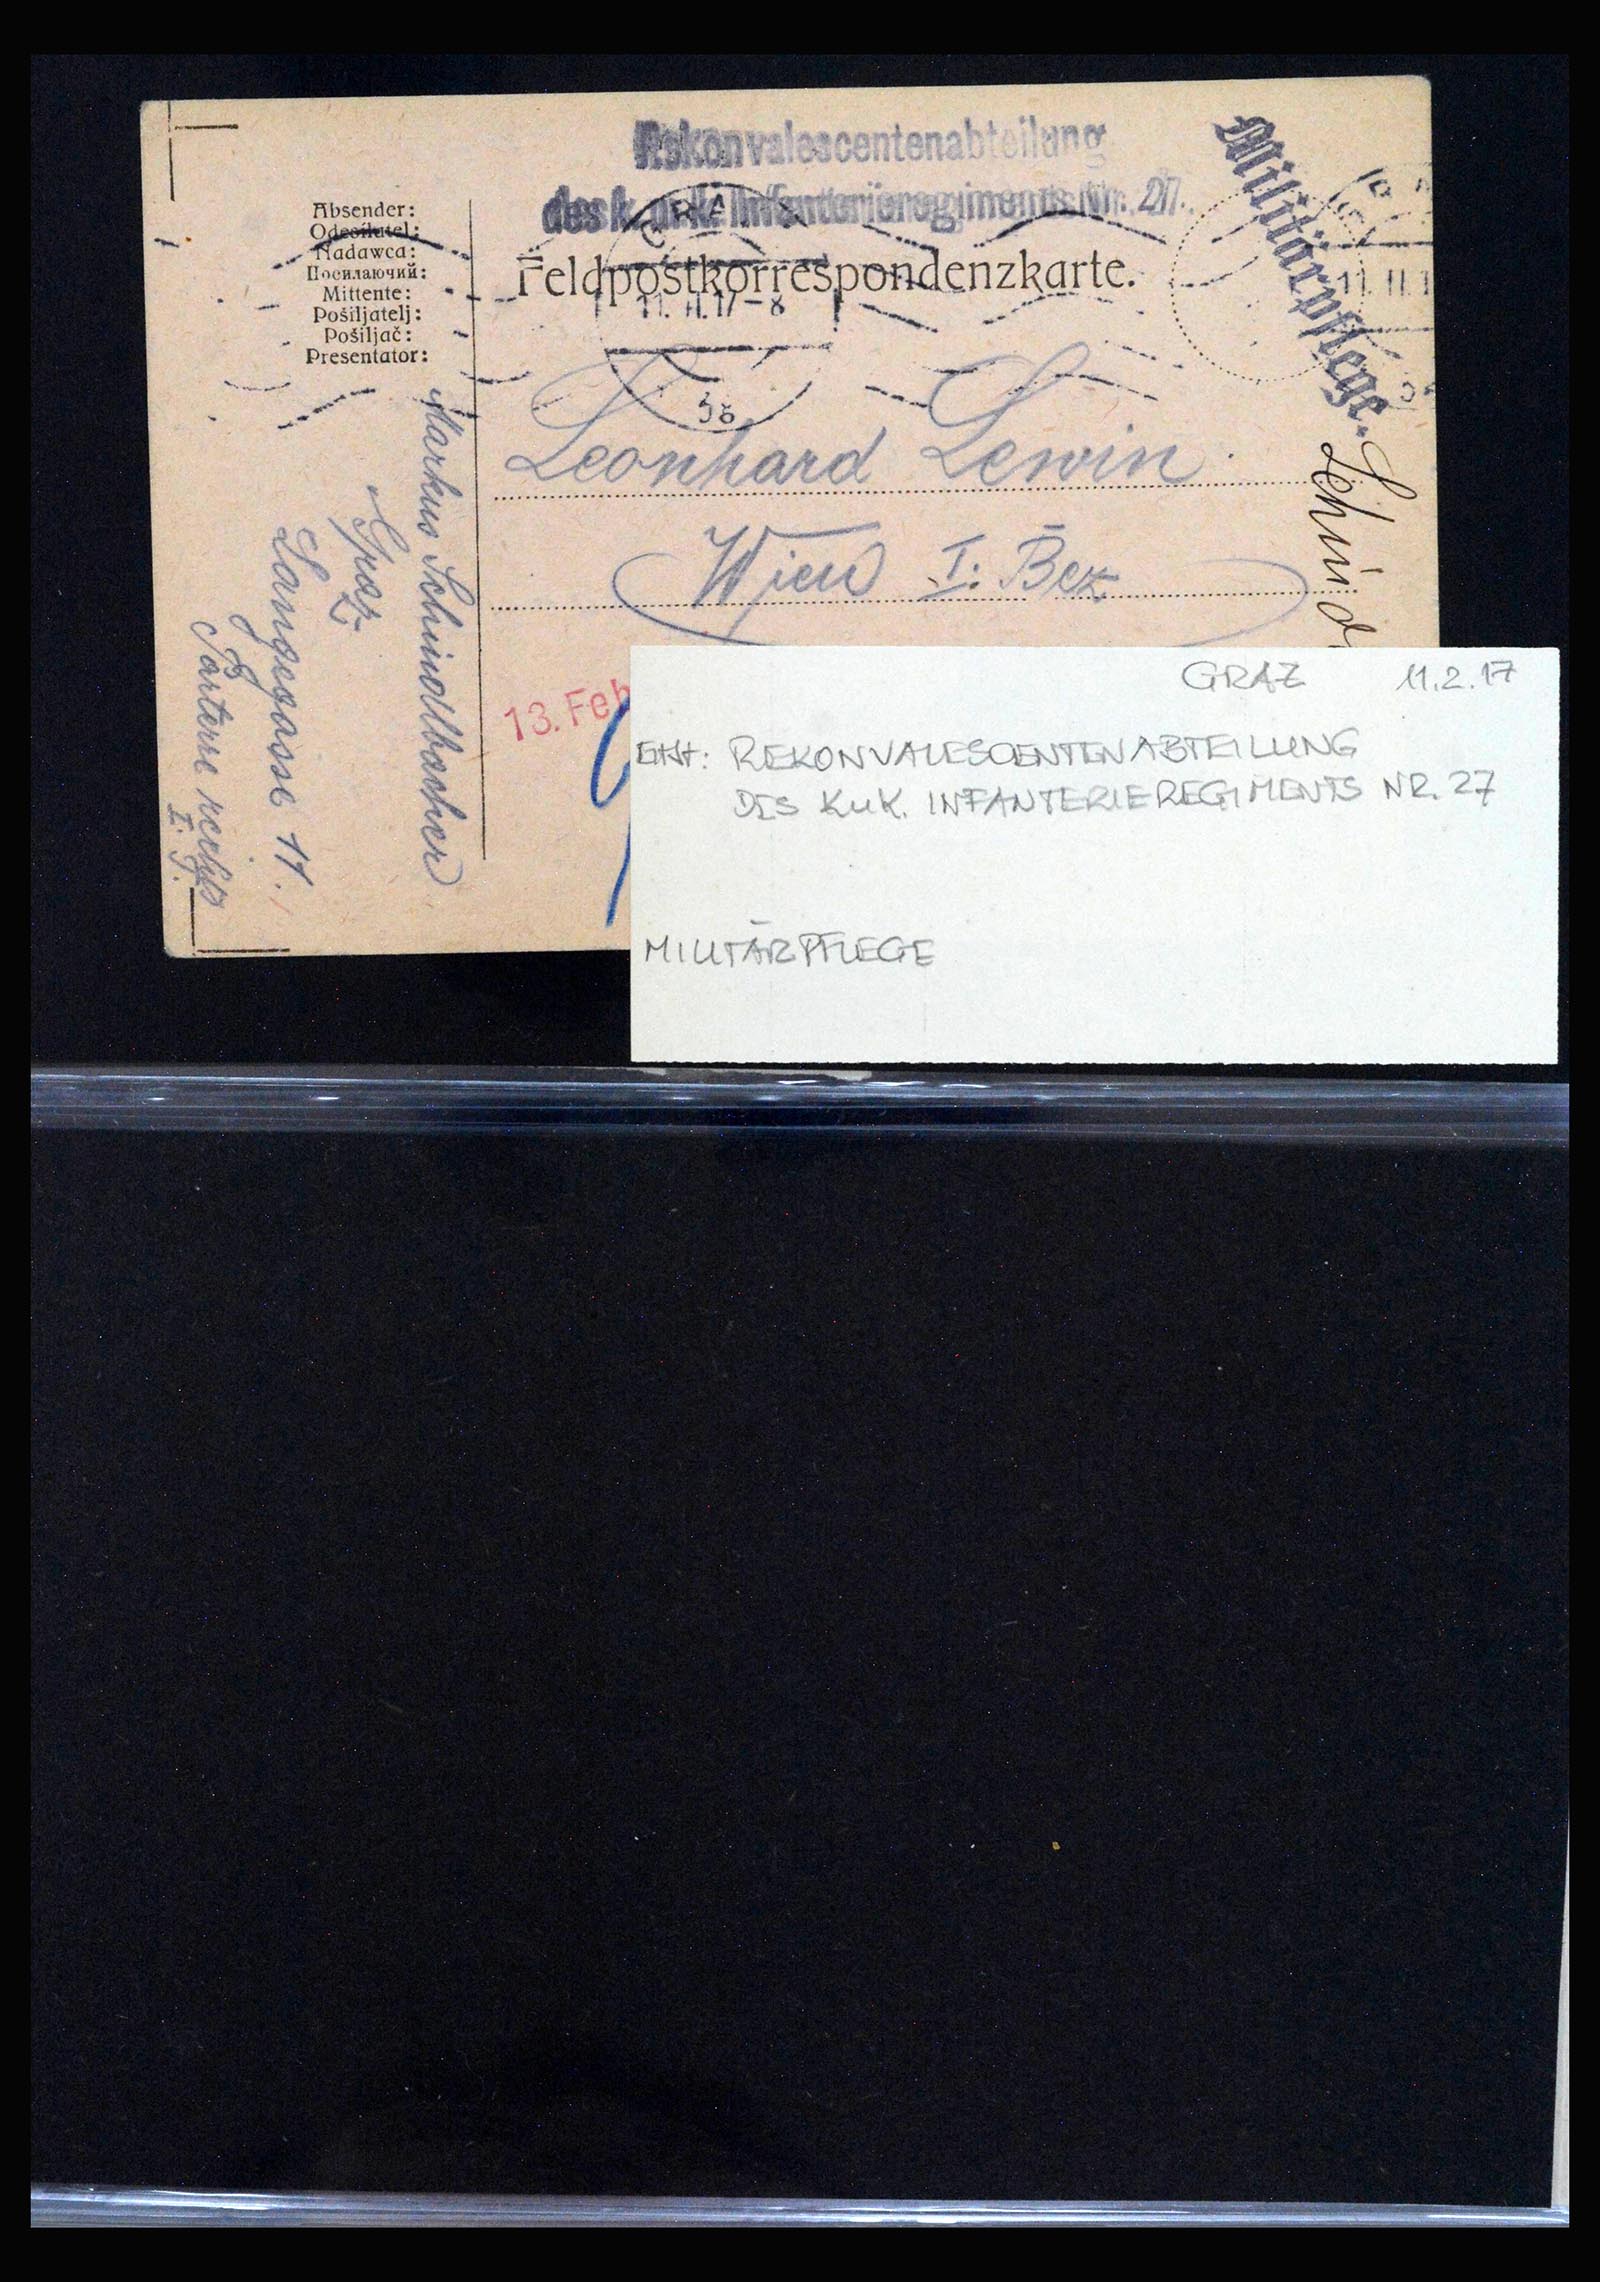 Rekonvalescentenabteilung
des k. u. k. Infanterieregiments Nr. 27.
Militärpflege.
Absender:
Odesílatel:
Nadawca:
Посилаючий:
Mittente:
Pošiljatelj:
Pošiljač:
Presentator:
Feldpostkorrespondenzkarte.
GRAZ
11. II. 17-8
11. II. 1
Leonhard Lewin
Wien I. Bez
Markus Schindlbacher
Graz
Langegasse 11.
Parterre rechts
13. Feb
GRAZ 11.2.17
REKONVALESCENTENABTEILUNG
DES K.u.K. INFANTERIEREGIMENTS NR. 27
MILITÄRPFLEGE